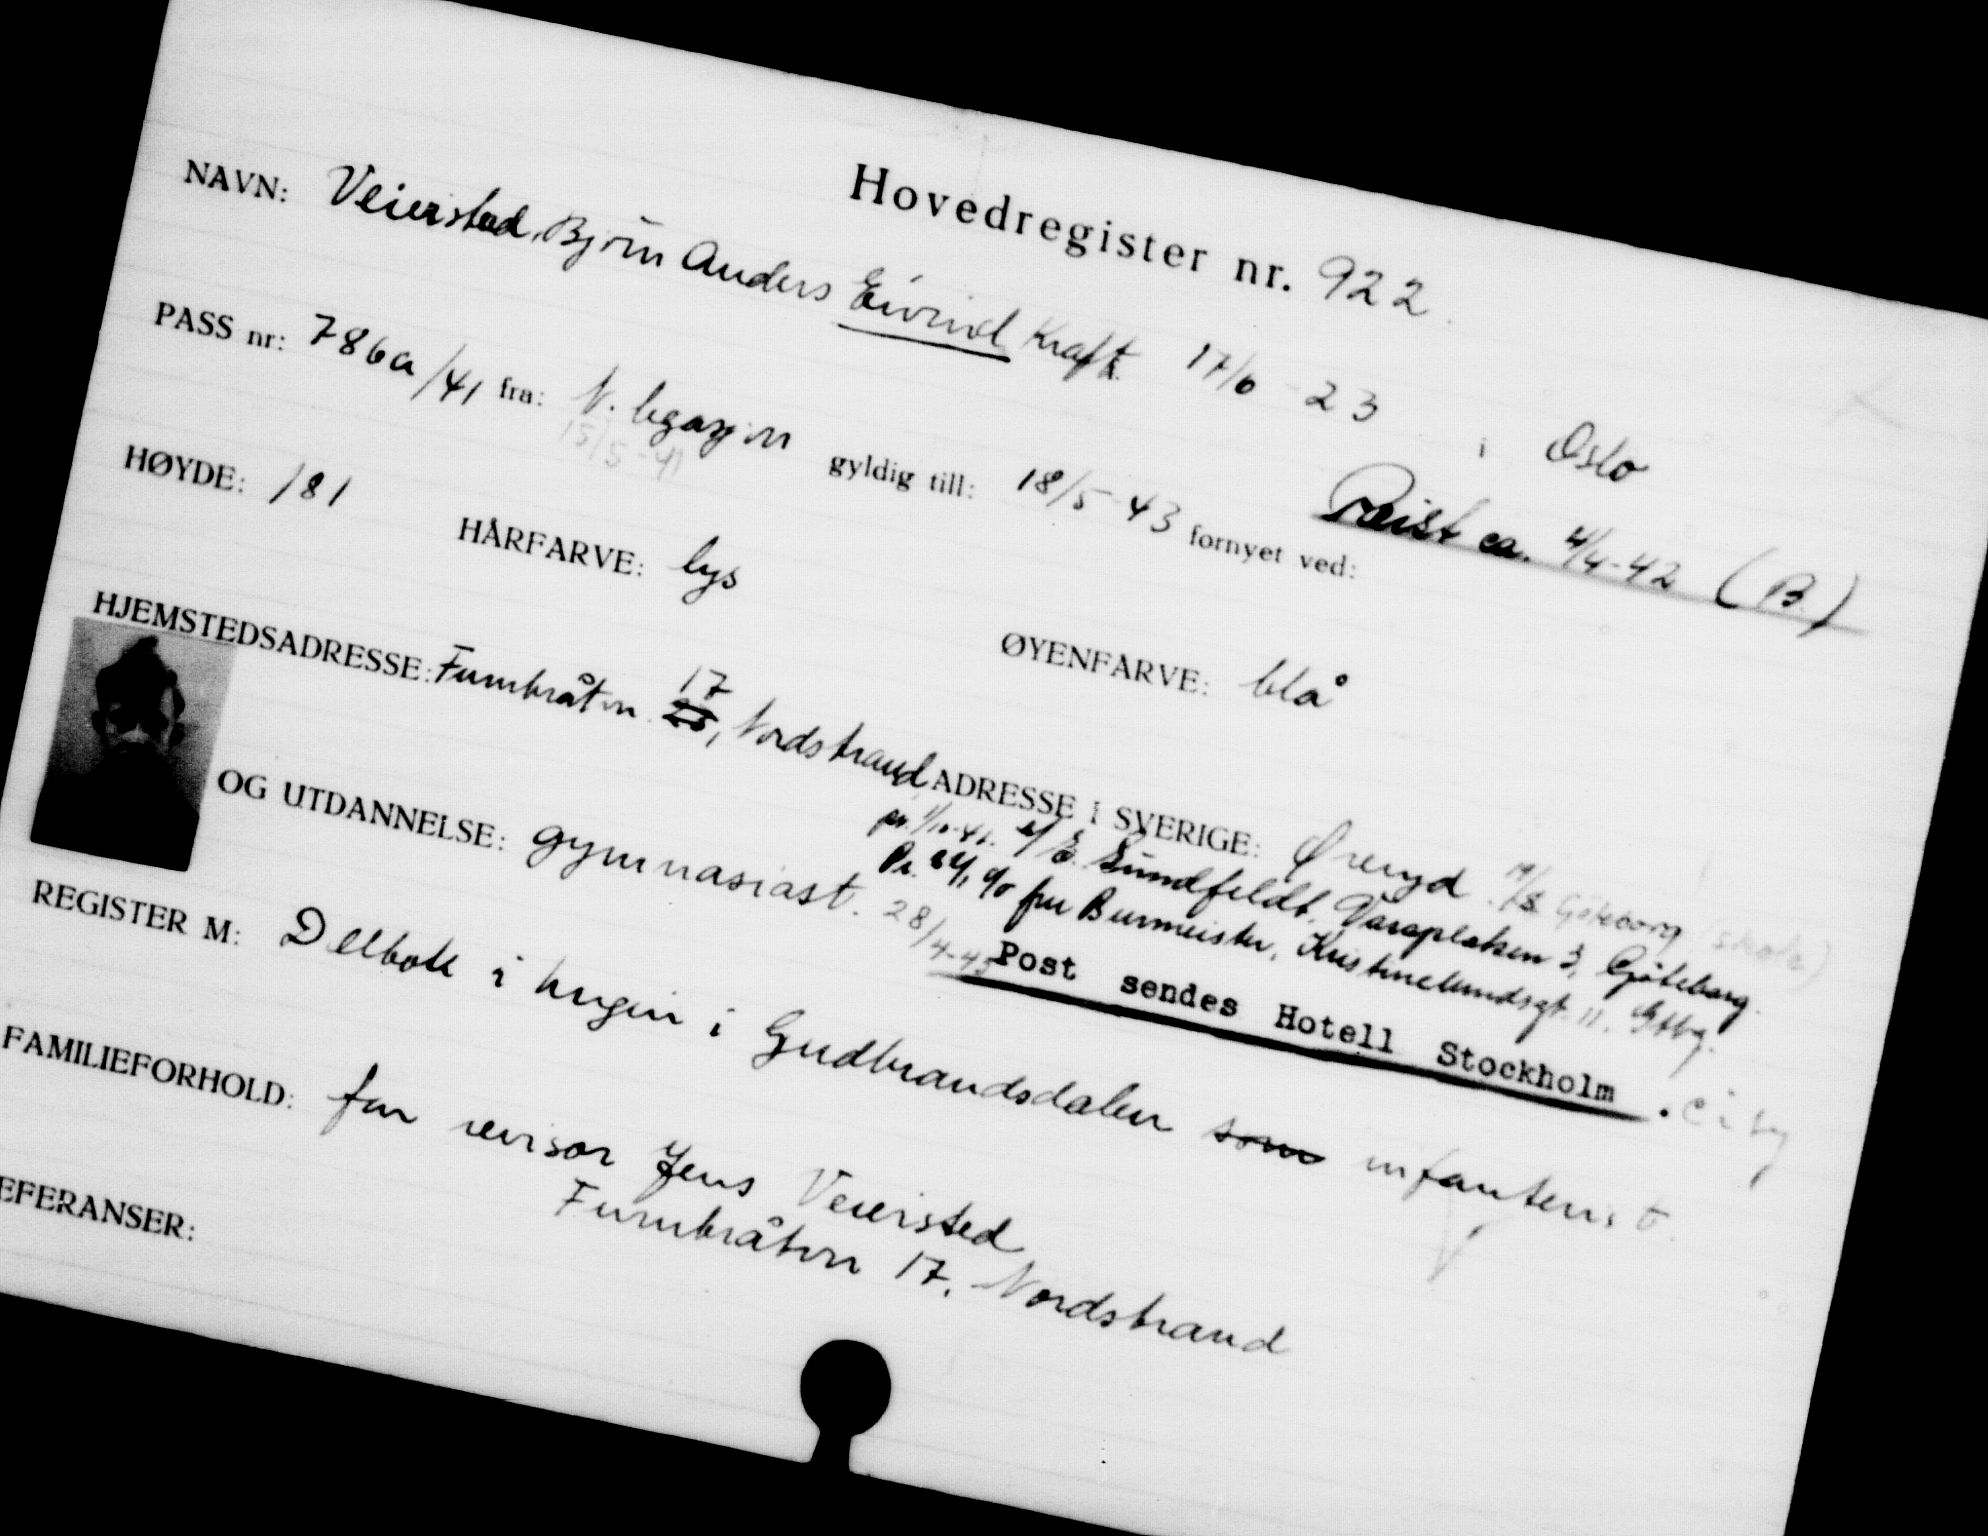 Hovedregister nr. 922.
NAVN: Veiersted, Bjørn Anders Eivind Kraft. 17/6-23 i Oslo
PASS nr: 786a/41 fra: N. legasjon gyldig till: 18/5-43 fornyet ved:
15/5-41
Reist ca. 4/4-42 (B.)
HØYDE: 181 HÅRFARVE: lys ØYENFARVE: blå
HJEMSTEDSADRESSE: Furubråtvn. 17 25, Nordstrand ADRESSE I SVERIGE: Øreryd. 19/8 Göteborg (skole)
pr. 1/10-41. c/o E. Sundfeldt, Vasaplatsen 3, Göteborg.
Pr. c/o fru Burmeister, Kristinelundsgt. 11. Gtbg.
OG UTDANNELSE: gymnasiast. 28/4-43 Post sendes Hotell Stockholm. City
REGISTER M: Deltok i krigen i Gudbrandsdalen som infanterist.
FAMILIEFORHOLD: far revisor Jens Veiersted
Furubråtvn 17. Nordstrand
EFERANSER: